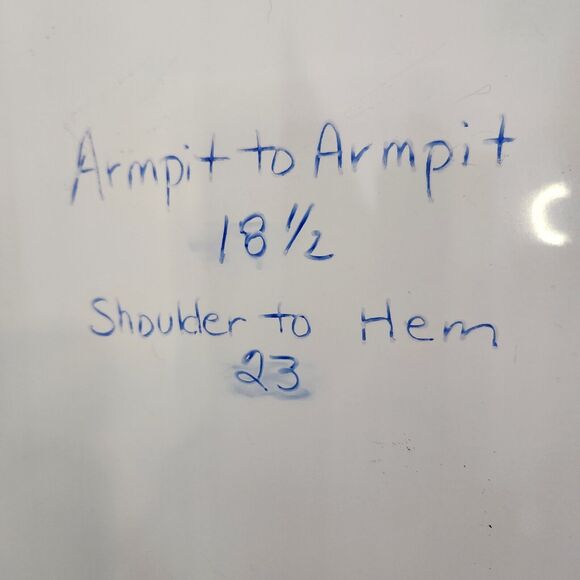 Armpit to Armpit
18 1/2
Shoulder to Hem
23